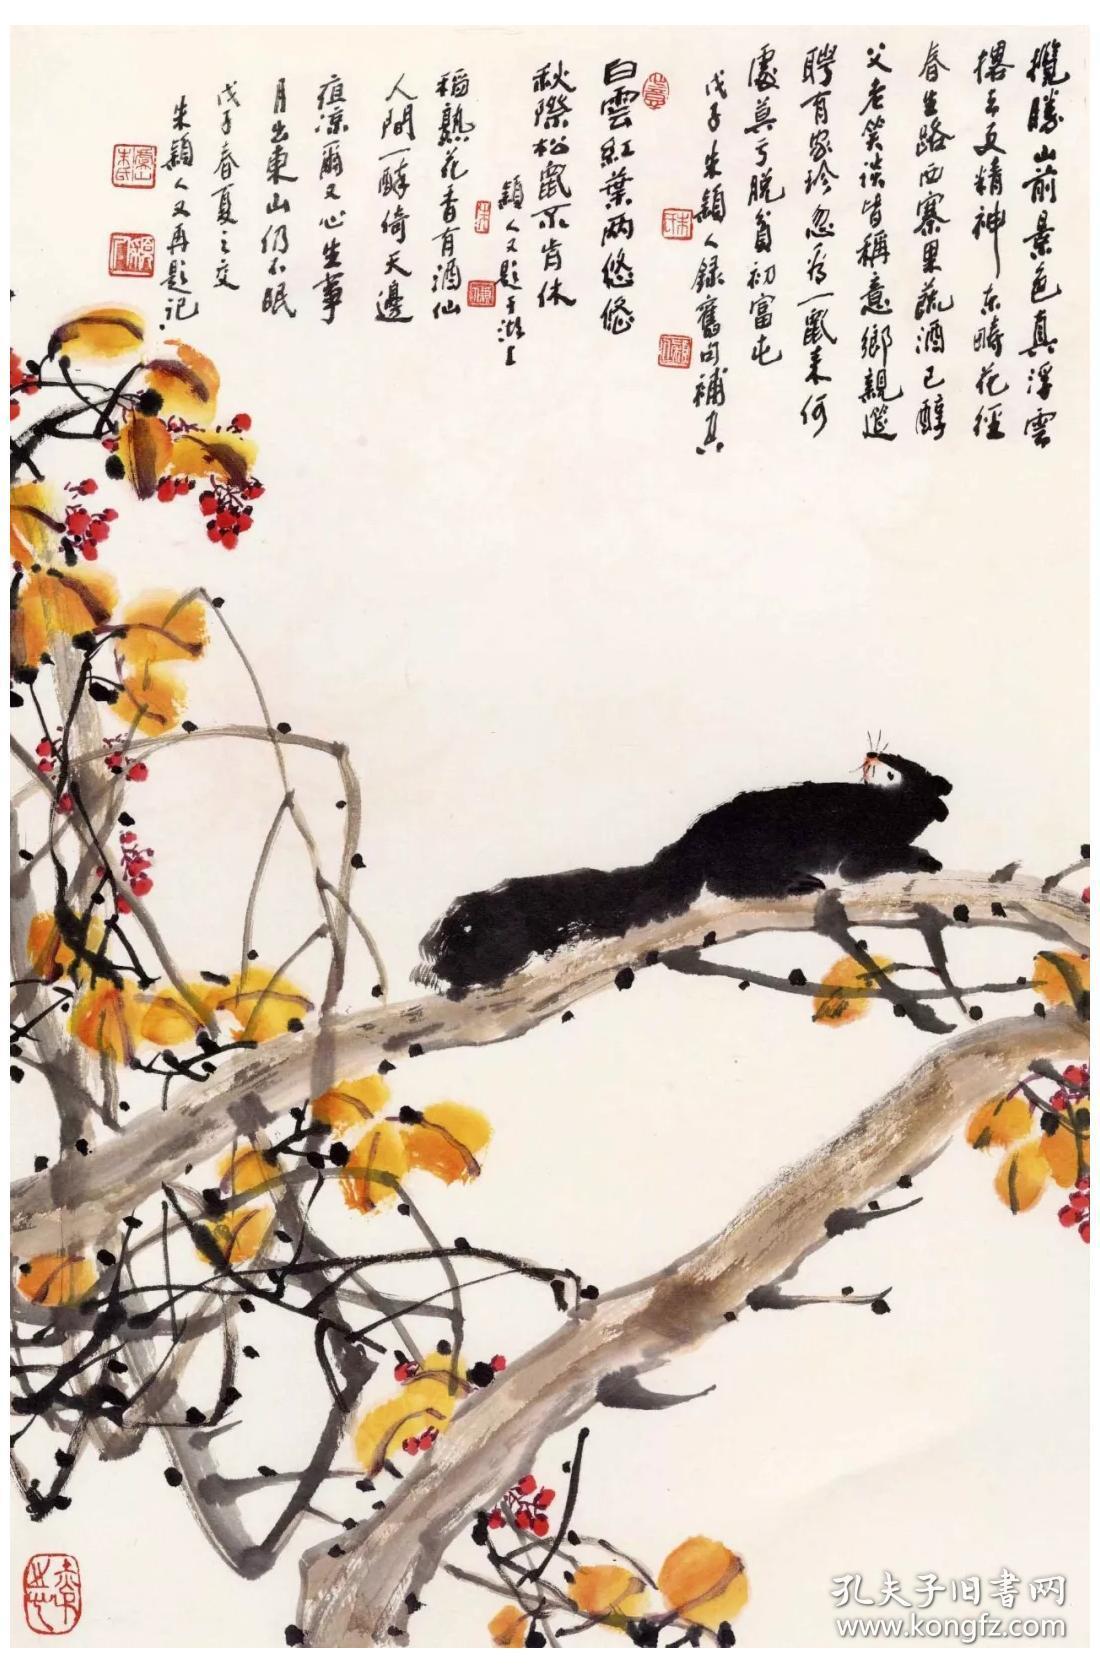 攬勝山前景色真浮雲
撂去更精神東疇花徑
春生路西寨果蔬酒已醇
父老笑談皆稱意鄉親選
聘有家珍忽為一鼠來何
處莫亏脫貧初富屯
戊子朱穎人錄舊句補其
白雲紅葉兩悠悠
秋際松鼠不肯休
穎人又題于湖上
稻熟花香有酒仙
人間一醉倚天邊
疽涼爾又心生事
月出東山仍不眠
戊子春夏之交
朱穎人又再題記
孔夫子旧書网
www.kongfz.com